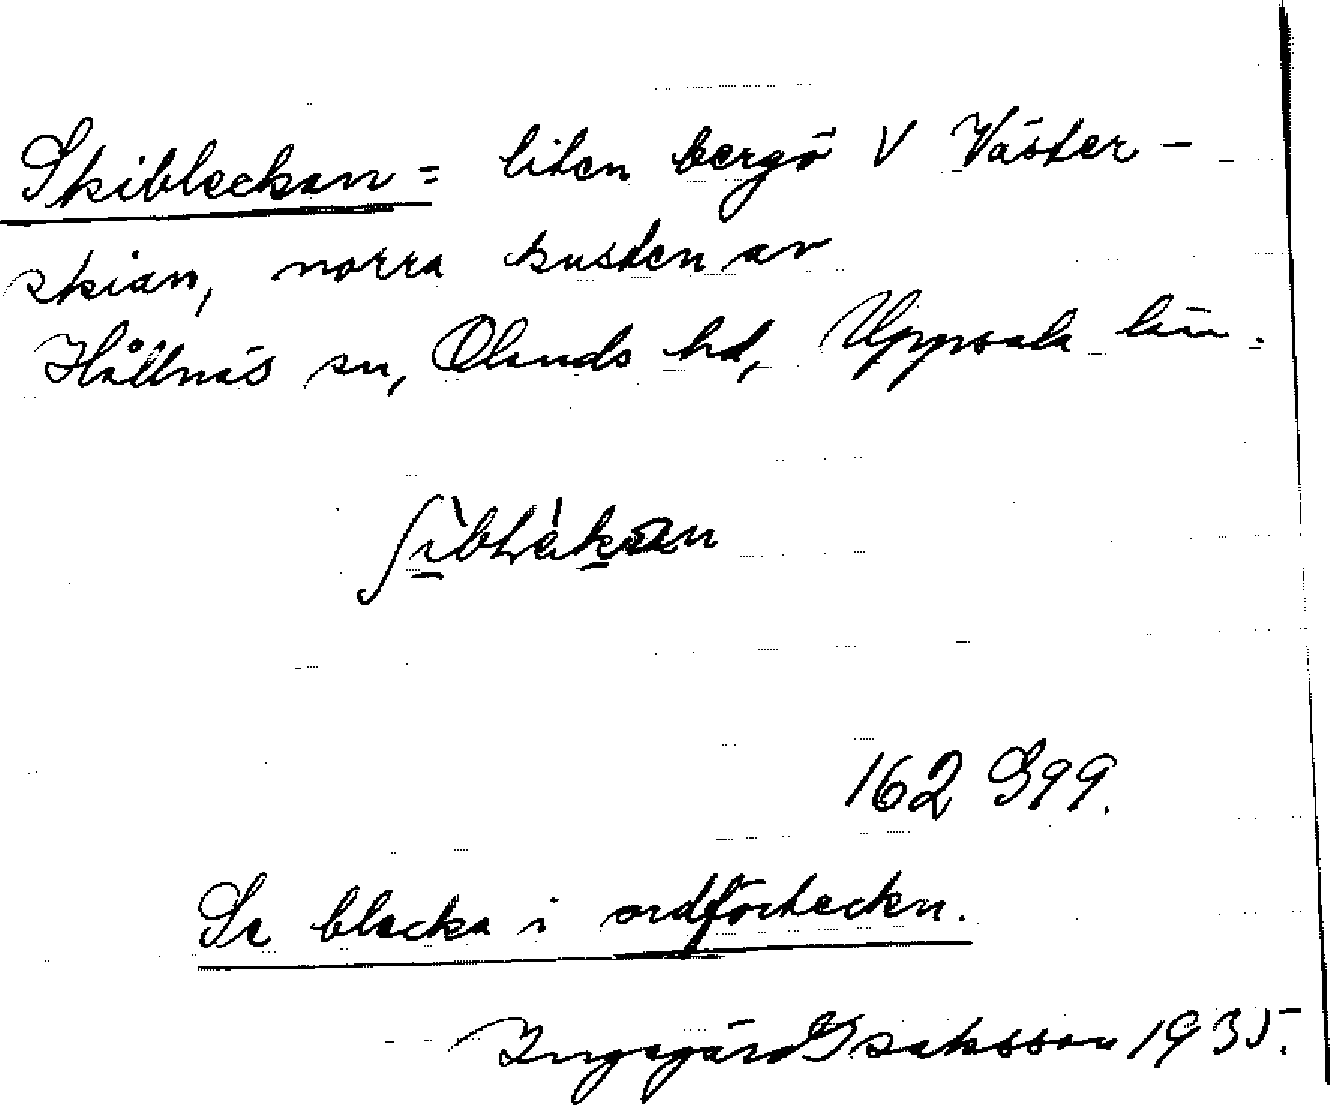 Skibleckan = liten bergö V Väster-
skian, norra kusten av
Hållnäs sn, Olands hd, Uppsala län.
162 S99.
Se blecka i ordförteckn.
Ingegärd Isaksson 1935.